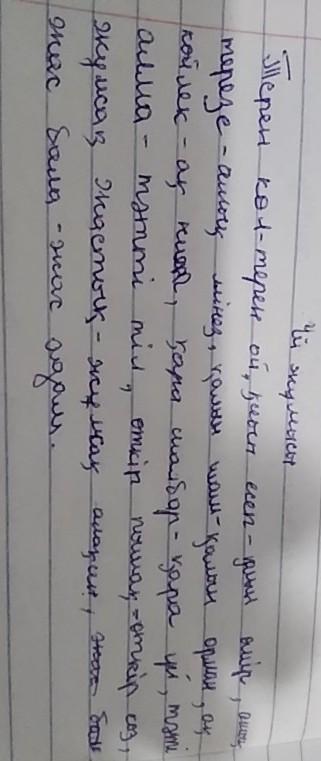 Үй жұмысы
Терең көл-терең ой, қиын есеп-қиын өмір, ашық
терезе-ашық мінез, қалың шам-қалың орман, ақ
көйлек-ақ қар, қара шалбар-қара үй, тәтті
алма-тәтті тіл, өткір пышақ-өткір сөз,
жұмсақ жастық-жұмсақ алақан,
жас бала-жас адам.